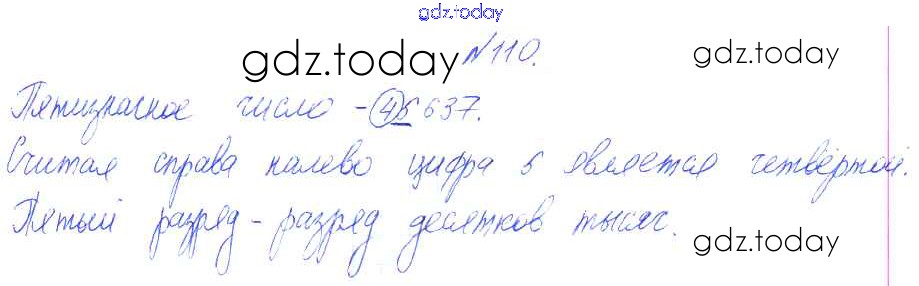 gdz.today
gdz.today №110. gdz.today
Пятизначное число - 45637.
Считая справа налево цифра 5 является четвёртой.
Пятый разряд - разряд десятков тысяч.
gdz.today